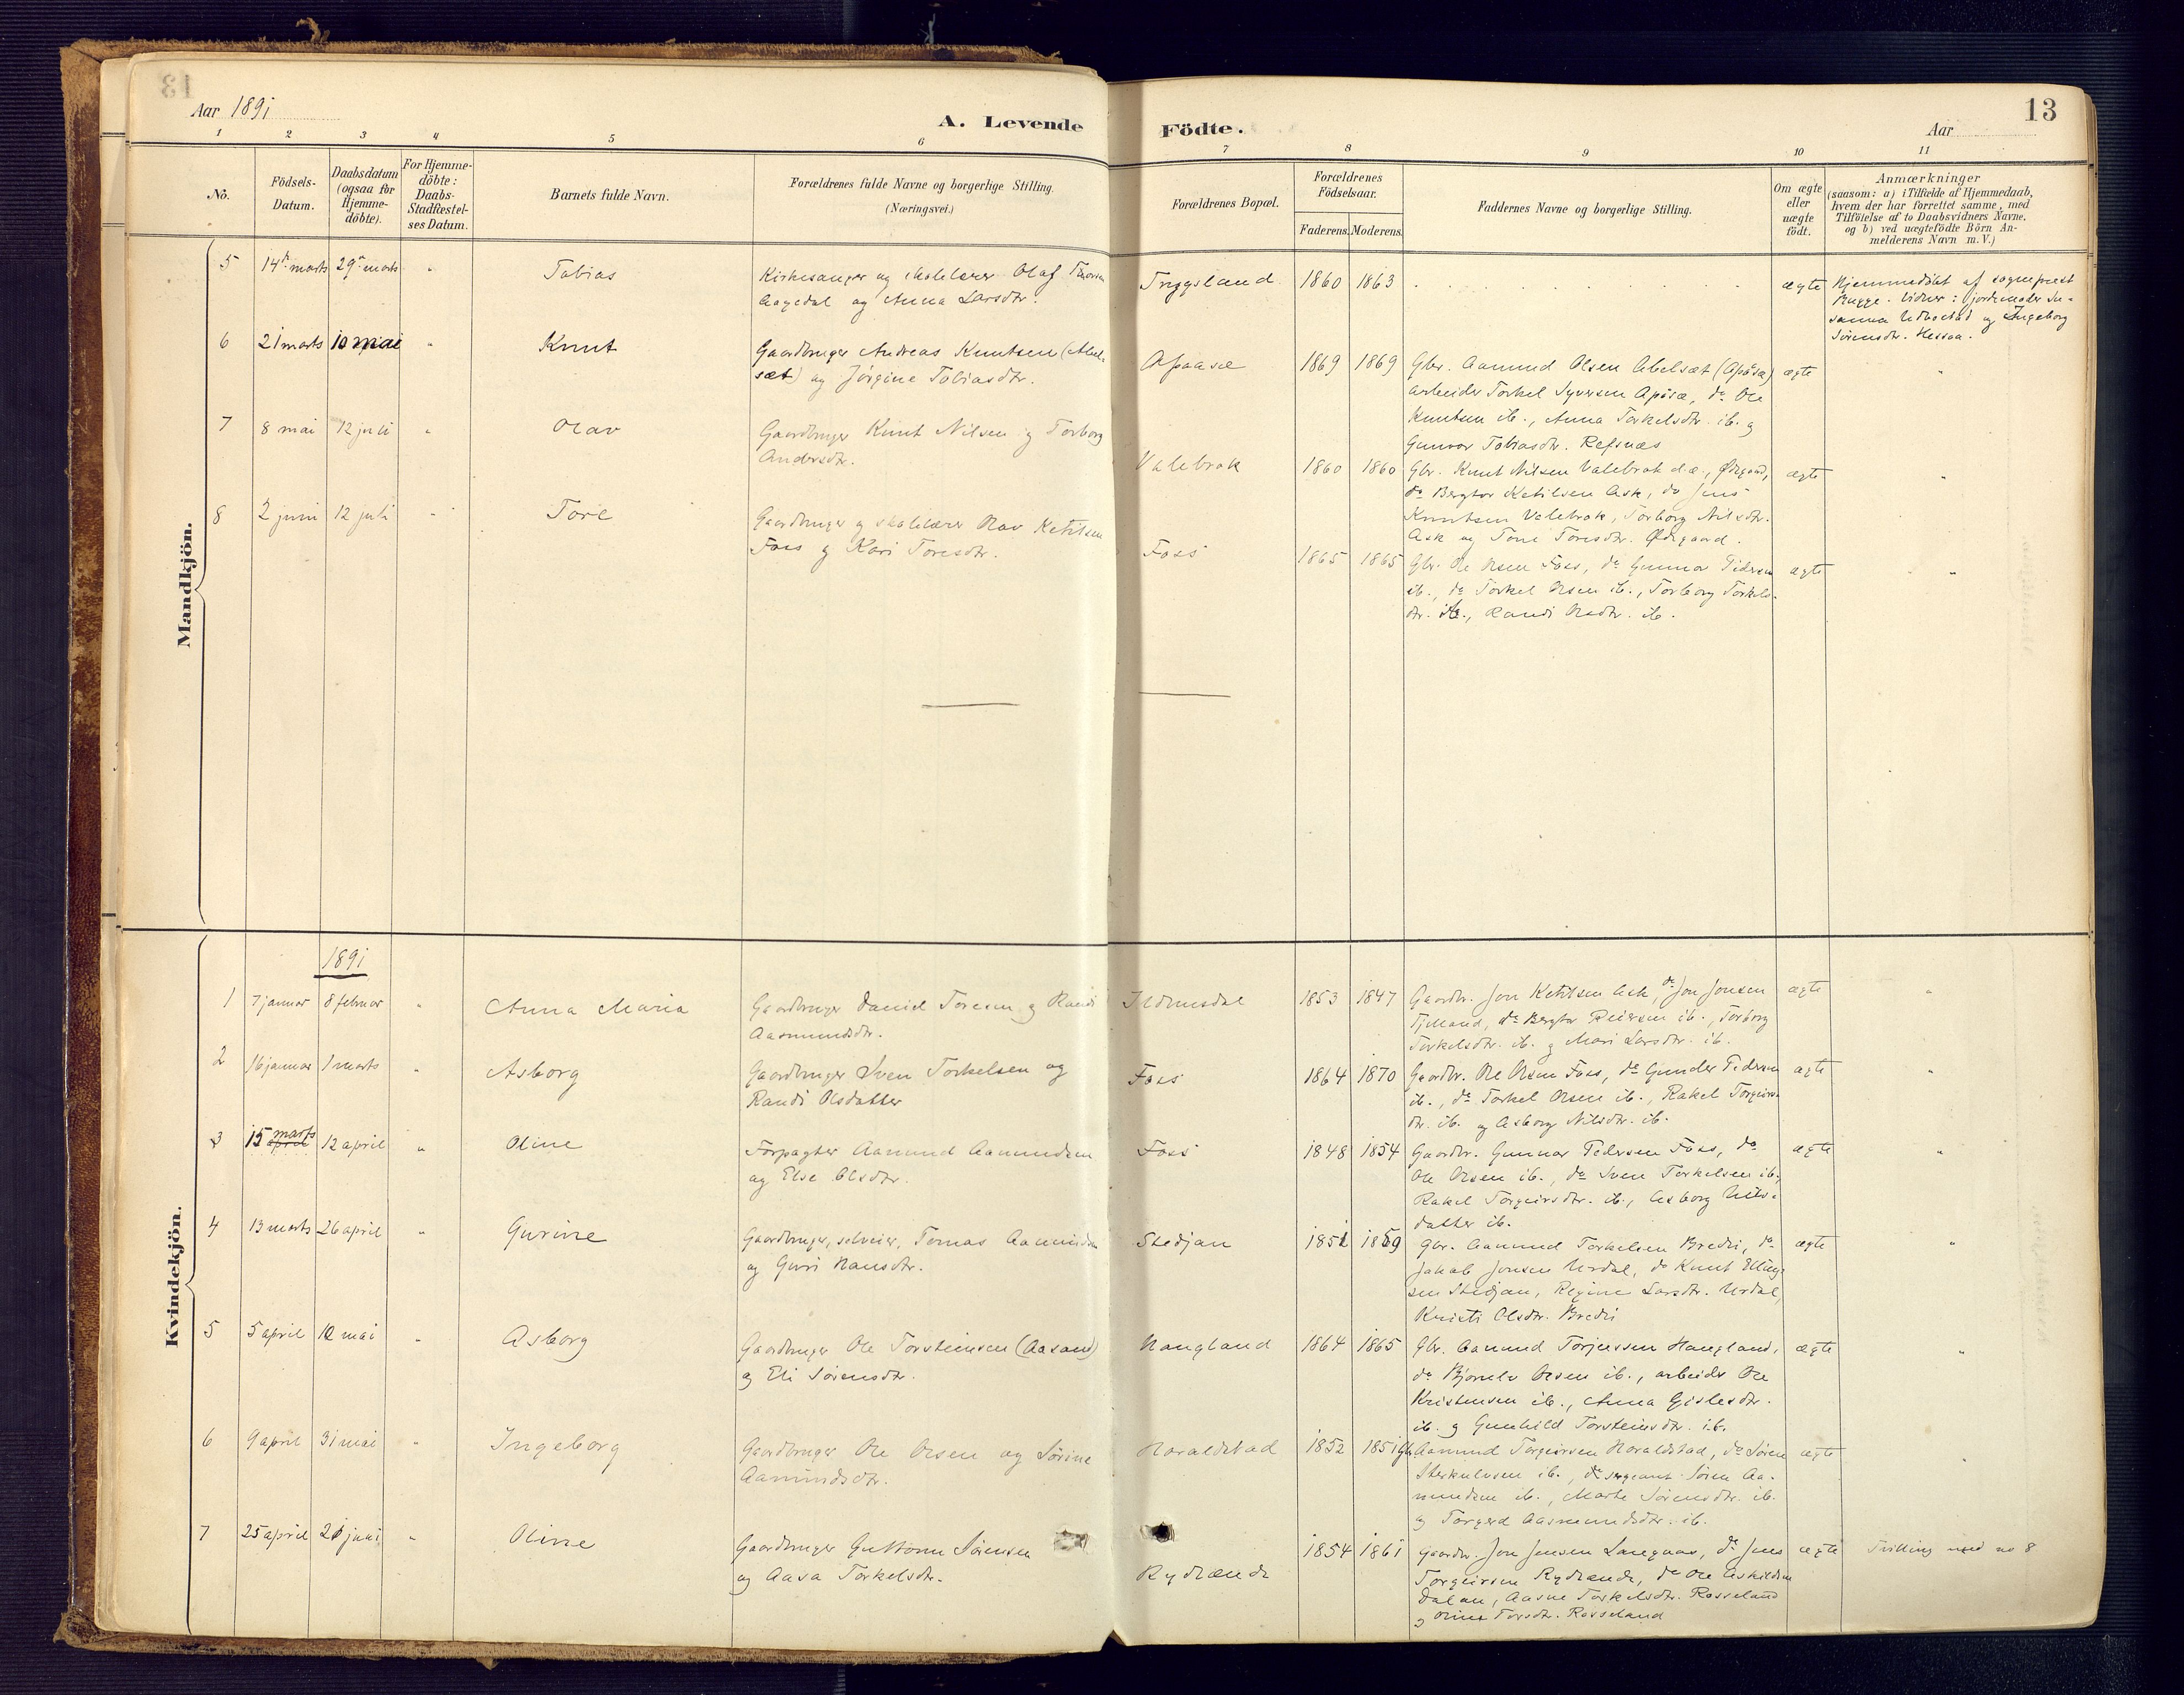 13
Aar 1891
A. Levende
Födte.
Aar
13
1 2 3 4 5 6 7 8 9 10 11
No.
Födsels-
Datum.
Daabsdatum
(ogsaa for
Hjemme-
döbte).
For Hjemme-
döbte:
Daabs-
Stadfæstel-
ses Datum.
Barnets fulde Navn.
Forældrenes fulde Navne og borgerlige Stilling.
(Næringsvei.)
Forældrenes Bopæl.
Forældrenes
Födselsaar.
Faderens. Moderens.
Faddernes Navne og borgerlige Stilling.
Om ægte
eller
uægte
födt.
Anmærkninger
(saasom: a) i Tilfælde af Hjemmedaab,
hvem der har forrettet samme, med
Tilföielse af to Daabsvidners Navne,
og b) ved uægtefödte Börn An-
melderens Navn m. V.)
Mandkjön.
5 14de marts 29de marts " Tobias
Kirkesanger og skolelærer Olaf
Aagedal og Anna Larsdtr.
Tryggsland 1860 1863 ægte
Hjemmedöbt af sogneprest
Bugge. Vidner: jordemoder Su-
sanna og Ingeborg
Sörensdtr. Hessaa.
6 21 marts 10 mai " Knut
Gaardbruger Andreas Knutsen (Abel-
sæt) og Jörgine Tobiasdtr.
Apaasæ 1869 1869
Gbr. Aamund Olsen Abelsæt (Apåsæ) ægte "
arbeider Torkel Syversen Apåsæ, do Ole
Knutsen ib., Anna Torkelsdtr. ib. og
Gunvor Tobiasdtr. Refsnæs
7 8 mai 12 juli " Olav
Gaardbruger Knut Nilsen og Torborg
Andersdtr.
Valebrok 1860 1860
Gbr. Knut Nilsen Valebrok d.æ., Ødegaard, ægte "
do Bergtor Ketilsen Ask, do Jens
Knutsen Valebrok, Torborg Nilsdtr.
Ask og Tone Toresdtr. Ødegaard.
8 2 juni 12 juli " Tore
Gaardbruger og skolelærer Olav Ketilsen
Foss og Kari Toresdtr.
Foss 1865 1865
Gbr. Ole Olsen Foss, do Gunnar Pedersen ægte "
ib., do Torkel Olsen ib., Torborg Torkels-
dtr. ib., Randi Olsdtr. ib.
Kvindekjön.
1891
1 7 januar 8 februar " Anna Maria
Gaardbruger Daniel Toresen og Randi
Aasmundsdtr.
Ildmusdal 1853 1847
Gaardbr. Jon Ketilsen Ask, do Jon Jonsen ægte "
Fjelland, do Bergtor Reiersen ib., Torborg
Torkelsdtr. ib. og Mari Larsdtr. ib.
2 16 januar 1 marts " Asborg
Gaardbruger Sven Torkelsen og
Randi Olsdatter
Foss 1864 1870
Gaardbr. Ole Olsen Foss, do Gunder Pedersen ægte "
ib., do Torkel Olsen ib., Rakel Torgeirs-
dtr. ib. og Asborg Nilsdtr. ib.
3 15 marts april 12 april " Oline
Forpagter Aamund Aamundsen
og Else Olsdtr.
Foss 1848 1854
Gaardbr. Gunnar Pedersen Foss, do ægte "
Ole Olsen ib., do Sven Torkelsen ib.,
Rakel Torgeirsdtr. ib., Asborg Nils-
datter ib.
4 13 marts 26 april " Gurine
Gaardbruger, selveier, Tomas Aamundsen
og Guri Hansdtr.
Stedjan 1851 1859
Gbr. Aamund Torkelsen Bredri, do ægte "
Jakob Jonsen Urdal, do Knut Elling-
sen Stedjan, Regine Larsdtr. Urdal,
Kristi Olsdtr. Bredri
5 5 april 10 mai " Asborg
Gaardbruger Ole Torsteinsen (Aasand)
og Eli Sörensdtr.
Haugland 1864 1865
Gbr. Aamund Torjussen Haugland, ægte "
do Bjørnulv Olsen ib., arbeider Ole
Kristensen ib., Anna Gislesdtr.
ib. og Gunhild Torsteinsdtr. ib.
6 9 april 31 mai " Ingeborg
Gaardbruger Ole Olsen og Sörine
Aamundsdtr.
Haraldstad 1852 1851
Gbr. Aamund Torgeirsen Haraldstad, do Sören ægte "
Sterkulvsen ib., do sergeant Sören Aa-
mundsen ib., Marte Sörensdtr. ib.
og Torgerd Aasmundsdtr. ib.
7 25 april 21 juni " Oline
Gaardbruger Guttorm Sörensen
og Aasa Torkelsdtr.
Rydlænde 1854 1861
Gaardbr. Jon Jensen Langaas, do Jens ægte Tvilling med no 8
Torgeirsen Rydlænde, do Ole Askildsen
Dalan, Aasne Torkelsdtr. Rosseland
og Oline Torsdtr. Rosseland